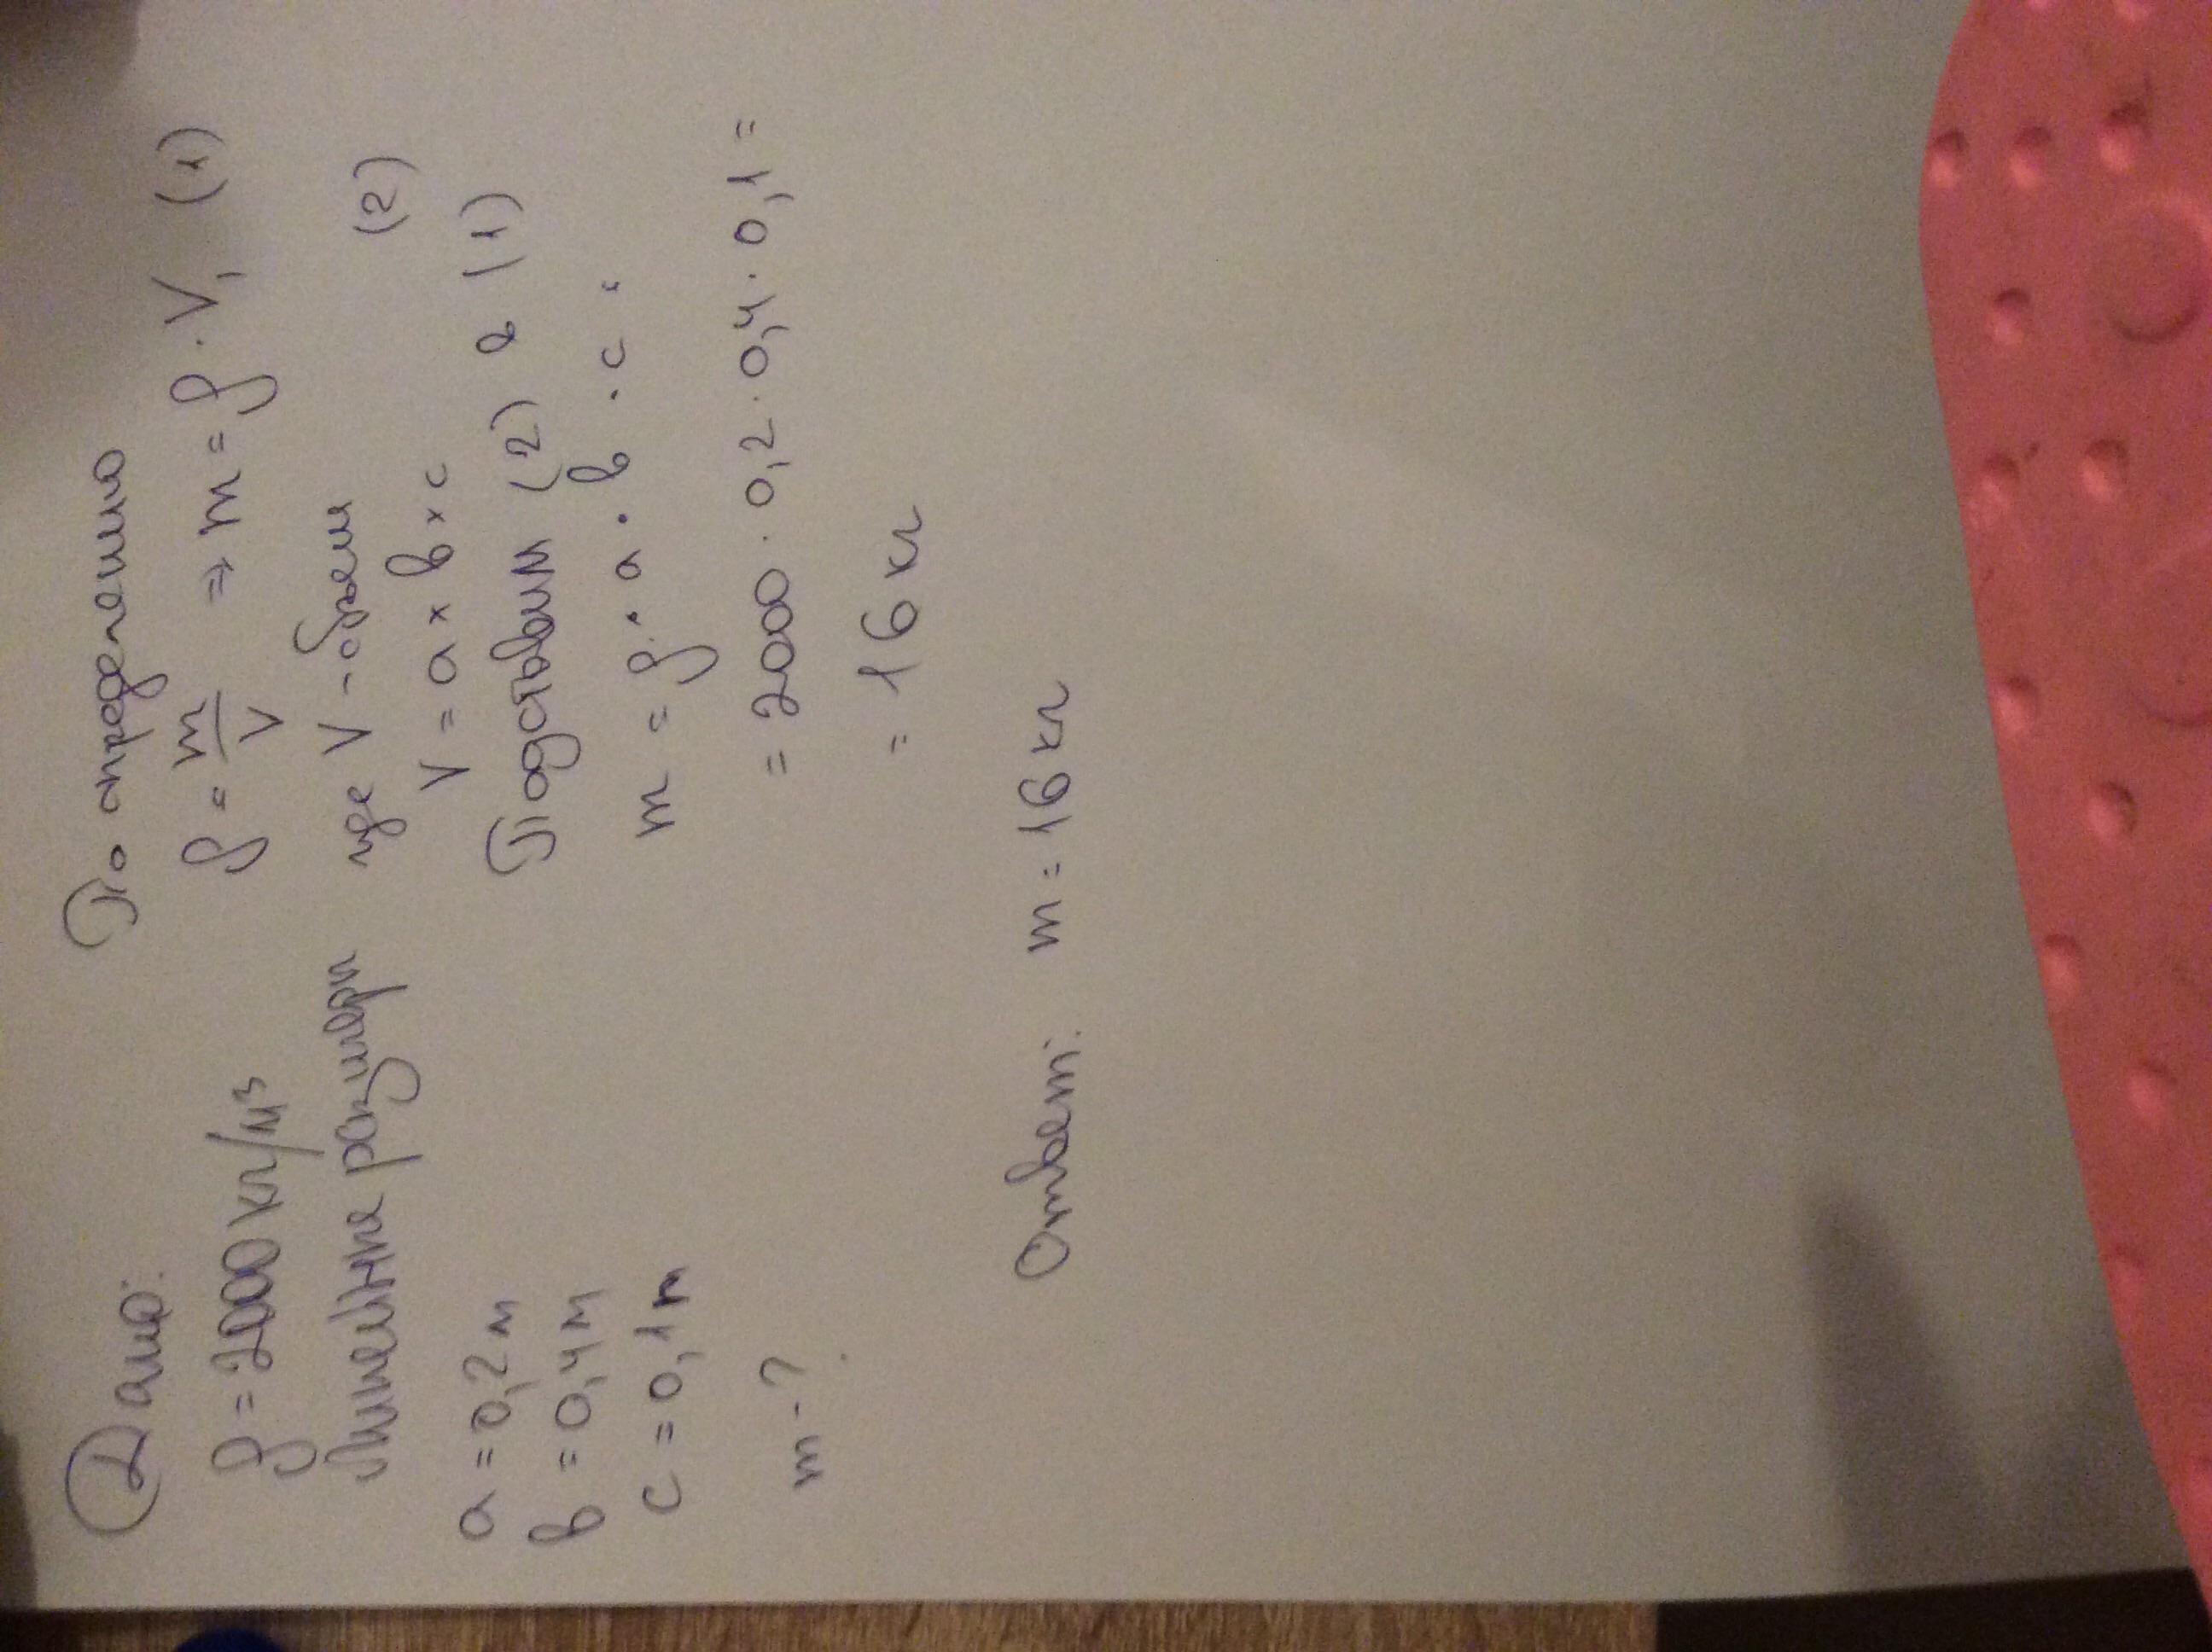 Дано:
ρ = 2000 кг/м³
Линейные размеры
a = 0,2 м
b = 0,4 м
c = 0,1 м
m - ?
По определению
ρ = m/V ⇒ m = ρ · V, (1)
где V - объем
V = a × b × c (2)
Подставим (2) в (1)
m = ρ · a · b · c =
= 2000 · 0,2 · 0,4 · 0,1 =
= 16 кг
Ответ: m = 16 кг